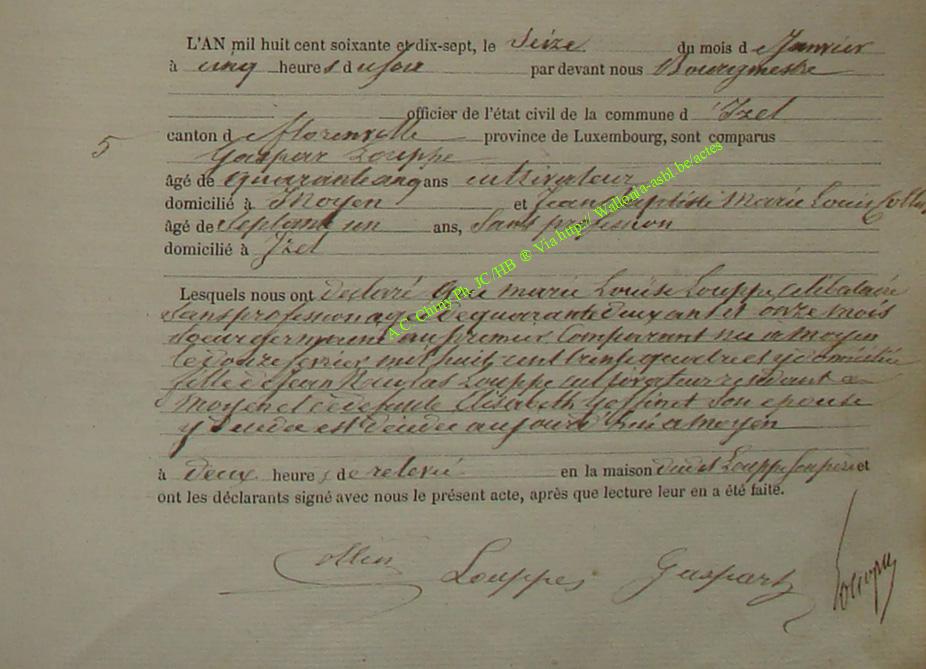 L'AN mil huit cent soixante et dix-sept, le Seize du mois de Janvier
à cinq heures du soir par devant nous Bourgmestre
officier de l'état civil de la commune d'Izel
5 canton de florenville province de Luxembourg, sont comparus
Gaspar Louppe
âgé de quarante cinq ans cultivateur
domicilié à Moyen et Jean Baptiste Marie Louis Collin
âgé de septante un ans, Sans profession
domicilié à Izel
Lesquels nous ont declaré que marie Louise Louppe, célibataire
Sans profession agée de quarante deux ans et onze mois
Soeur germaine au premier Comparant née a moyen
le douze fevrier mil huit cent trente quatre et y domiciliée
fille de Jean Nicolas Louppe cultivateur residant a
Moyen et de defunte Elisabeth Goffinet Son epouse
y est décédée aujourd'hui a moyen
à Deux heures de relevée en la maison dudit Louppe Son père et
ont les déclarants signé avec nous le présent acte, après que lecture leur en a été faite.
Collin Louppe Gaspart
A.C. Chiny Ph. JC/HB ® Via http:// Wallonia-asbl.be/actes